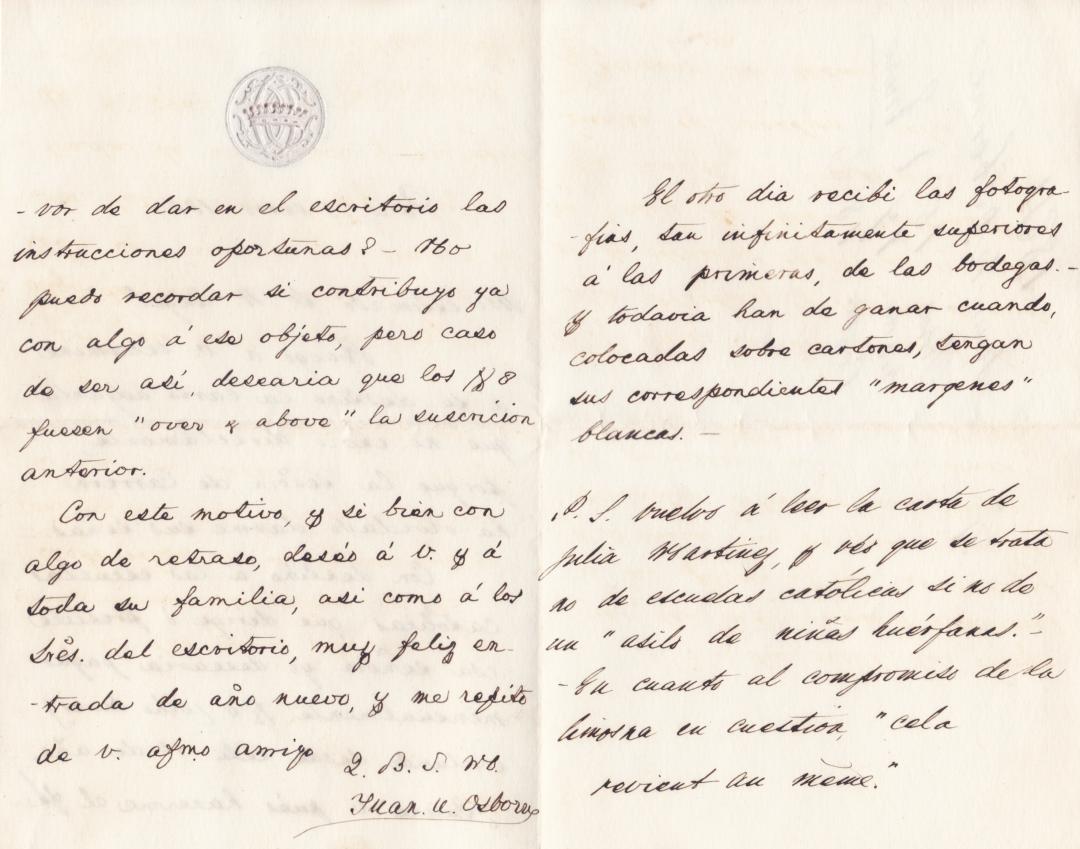 -vor de dar en el escritorio las
instrucciones oportunas? - No
puedo recordar si contribuyo ya
con algo á ese objeto, pero caso
de ser así, desearia que los 8
fuesen "over & above" la suscricion
anterior.
Con este motivo, y si bien con
algo de retraso, deséo á V. y á
toda su familia, asi como á los
Srês. del escritorio, muy feliz en-
-trada de año nuevo, y me repito
de V. afmo. amigo
Q. B. S. M.
Juan. N. Osborne
El otro dia recibi las fotogra-
-fias, tan infinitamente superiores
á las primeras, de las bodegas. -
y todavia han de ganar cuando,
colocadas sobre cartones, tengan
sus correspondientes "margenes"
blancas. -
P. S. Vuelvo á leer la carta de
Julia Martinez, y véo que se trata
no de escuelas católicas si no de
un "asilo de niñas huérfanas." -
- En cuanto al compromiso de la
limosna en cuestion, "cela
revient au même."